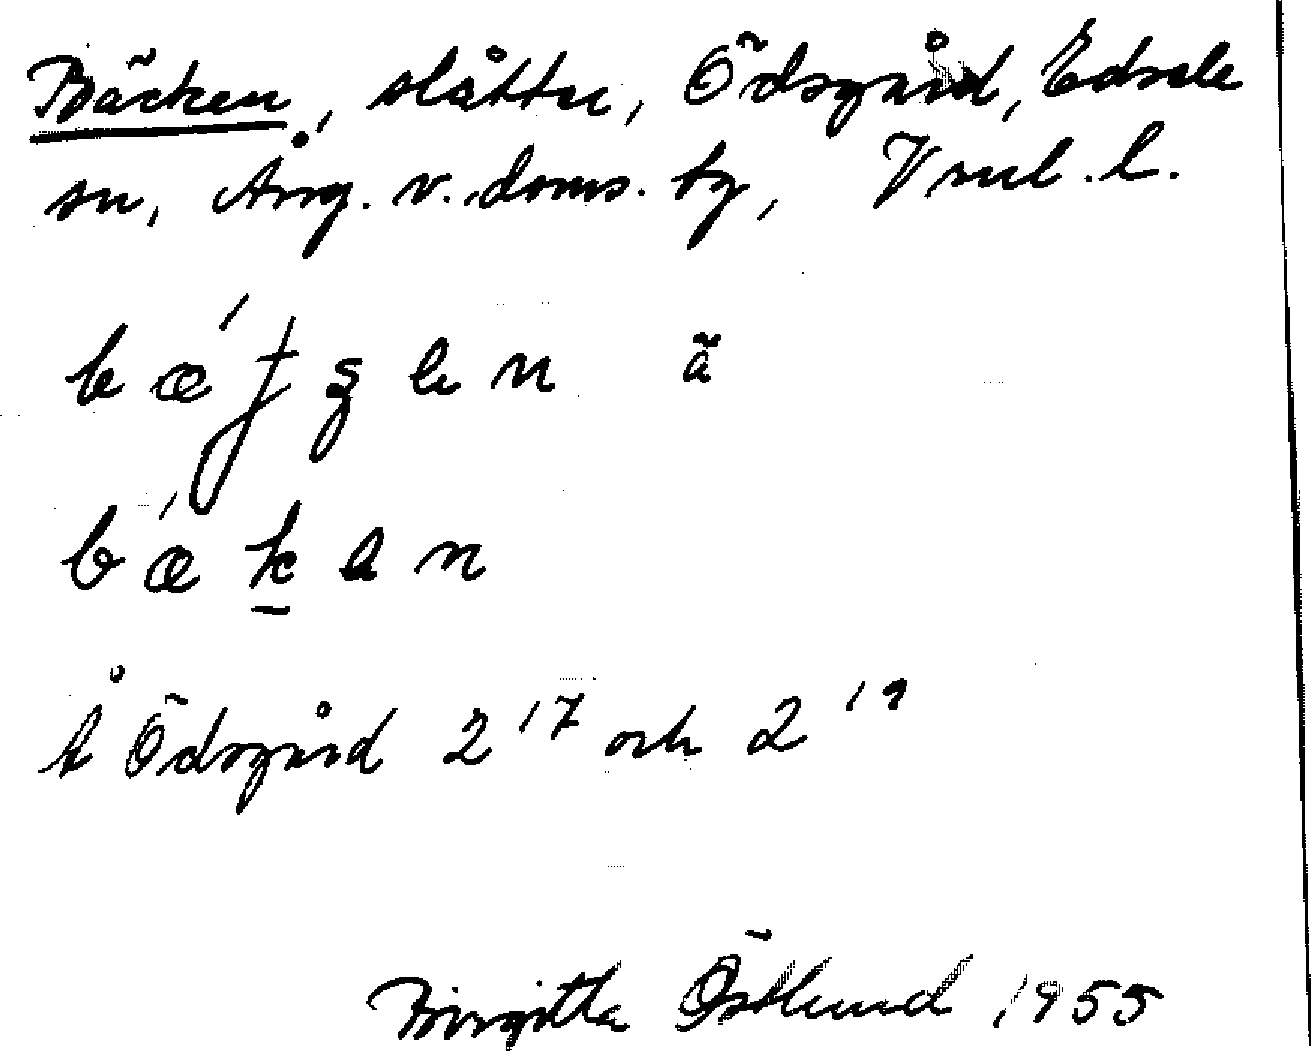 Bäcken, slåtter, Ödsgård, Edsele
sn, Ång. v. doms. tg, Vnl. l.
b ǽ ʄ ʂ e n ä
b ǽ k e n
Å Ödsgård 2¹⁷ och 2¹⁹
Birgitta Östlund 1955